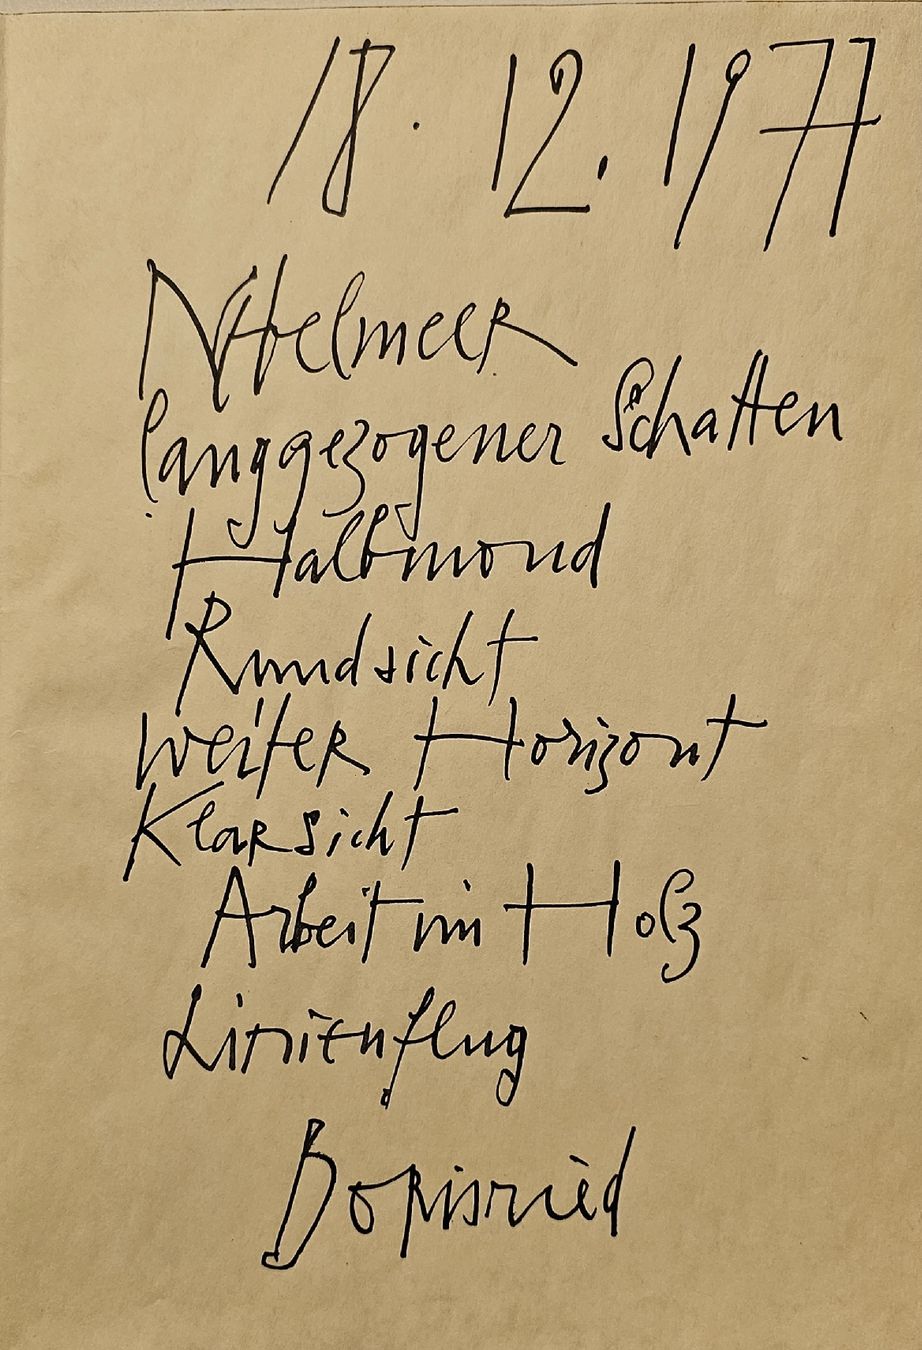 18. 12. 1977
Nebelmeer
langgezogener Schatten
Halbmond
Rundsicht
weiter Horizont
Klarsicht
Arbeit im Holz
Linienflug